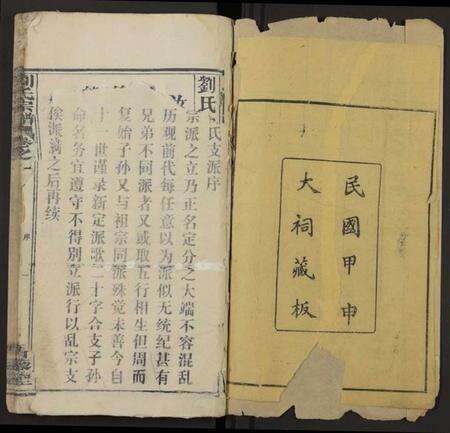 民國甲申
大祠藏板
劉氏
氏支派序
宗派之立乃正名定分之大端不容混乱
历现前代每任意以为派似无统纪甚有
兄弟不同派者又或取五行相生但周而
复始子孙又与祖宗同派殊觉未善今自
十一世谨录新定派歌二十字合支子孙
命名务宜遵守不得别立派行以乱宗支
俟派满之后再续
劉氏宗譜卷之一
序
一